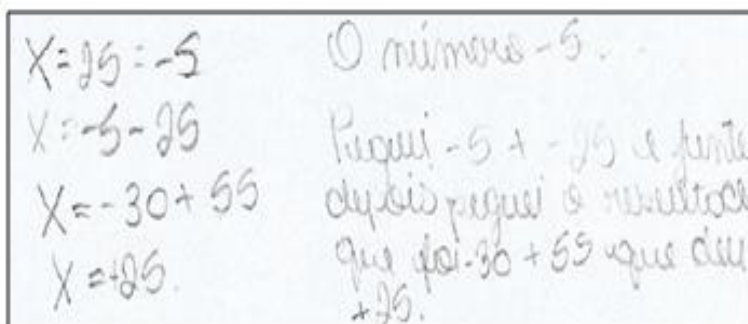 X = 25 = -5
X = -5 - 25
X = -30 + 55
X = +25.
O número -5.
Peguei -5 + -25 e junte
depois peguei o resultado
que foi -30 + 55 que deu
+25.